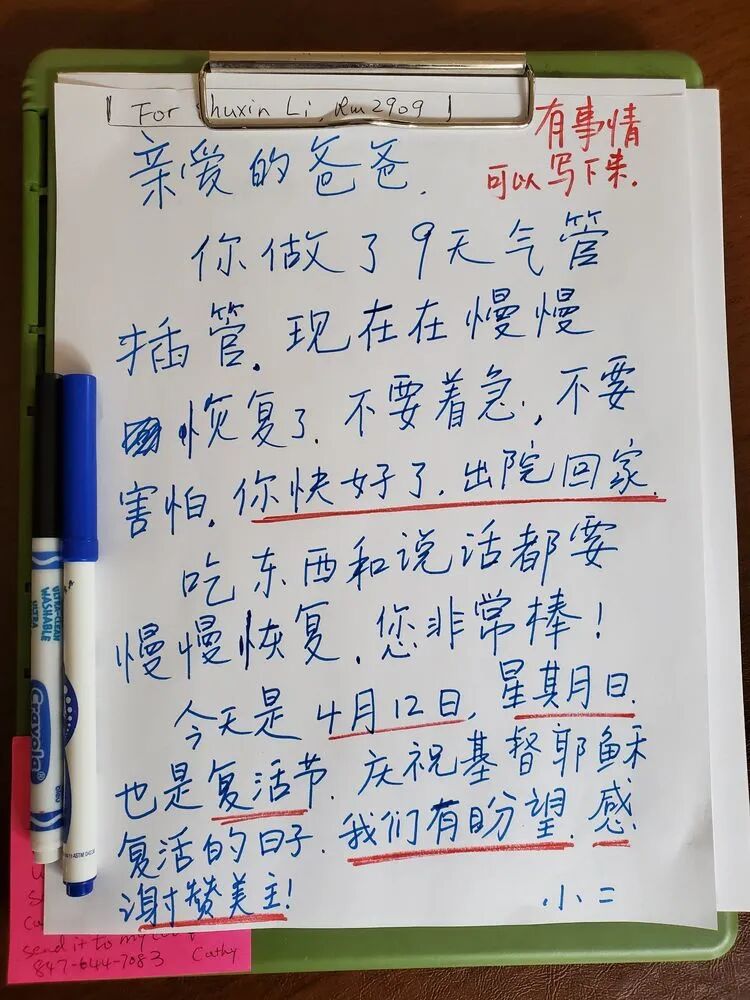 For Shuxin Li, Rm2909
有事情
可以写下来.
亲爱的爸爸.
你做了9天气管
插管.现在在慢慢
恢复了.不要着急,不要
害怕.你快好了.出院回家.
吃东西和说话都要
慢慢恢复.您非常棒!
今天是4月12日,星期日.
也是复活节.庆祝基督耶稣
复活的日子.我们有盼望.感
谢赞美主!
小二
ULTRA-CLEAN
WASHABLE
ULTRA
Crayola
send it to my
847-644-7083 Cathy